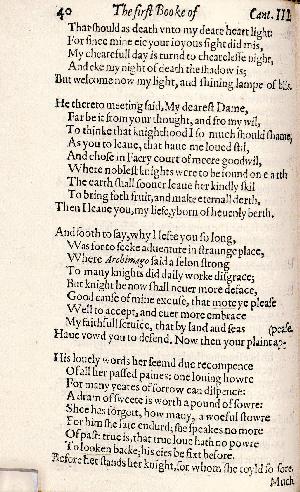 40 The first Booke of Cant. III.
That should as death vnto my deare heart light:
For since mine eie your ioyous sight did mis,
My chearefull day is turnd to chearelesse night,
And eke my night of death the shadow is;
But welcome now my light, and shining lampe of blis.
He thereto meeting said, My dearest Dame,
Far be it from your thought, and fro my wil,
To thinke that knighthood I so much should shame,
As you to leaue, that haue me loued stil,
And chose in Faery court of meere goodwil,
Where noblest knights were to be found on earth
The earth shall sooner leaue her kindly skil
To bring forth fruit, and make eternall derth,
Then I leaue you, my liefe, yborn of heuenly berth.
And sooth to say, why I lefte you so long,
Was for to seeke aduenture in straunge place,
Where Archimago said a felon strong
To many knights did daily worke disgrace;
But knight he now shall neuer more deface,
Good cause of mine excuse, that mote ye please
Well to accept, and euer more embrace
My faithfull seruice, that by land and seas
Haue vowd you to defend, Now then your plaint ap- (pease.
His louely words her seemd due recompence
Of all her passed paines: one louing howre
For many yeares of sorrow can dispence:
A dram of sweete is worth a pound of sowre:
Shee has forgott, how many, a woeful stowre
For him she late endurd; she speakes no more
Of past: true is, that true loue hath no powre
To looken backe; his eies be fixt before.
Before her stands her knight, for whom she toyld so sore.
Much